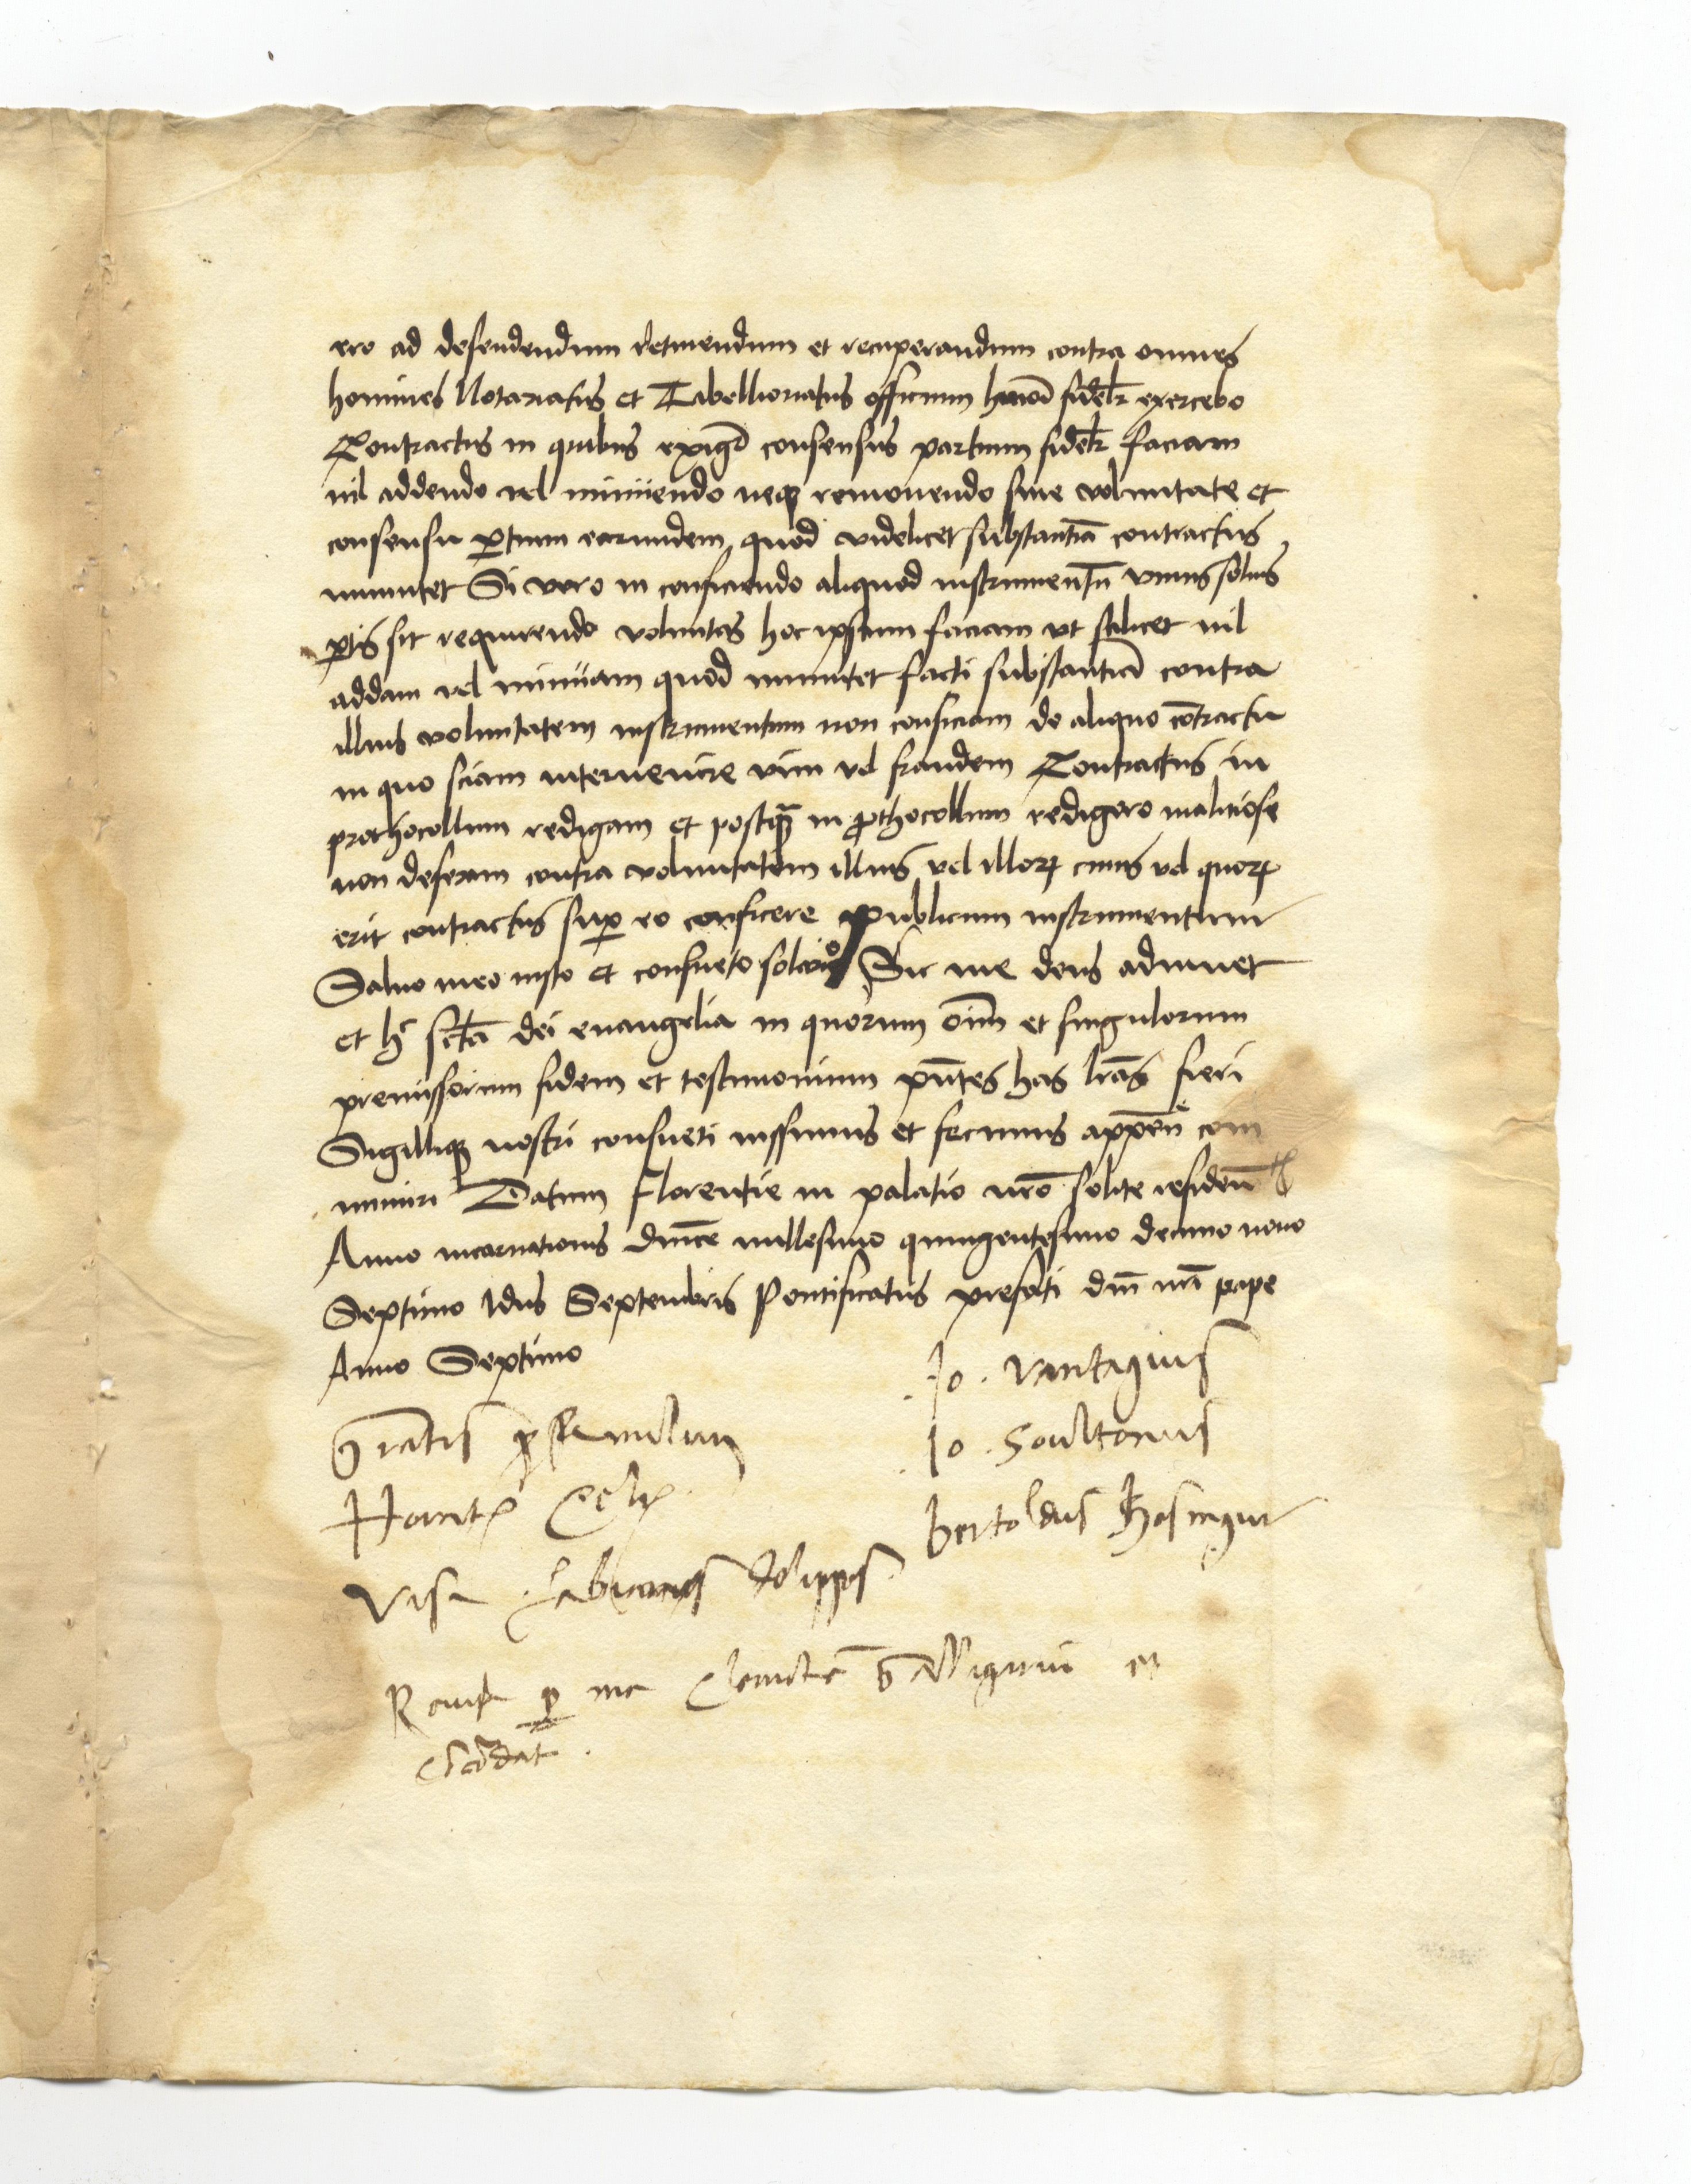 ero ad defendendum retinendum et recuperandum contra omnes
homines Notariatus et Tabellionatus officium hmõi fidelr exercebo
Contractus in quibus exigr̃ consensus partium fidelr faciam
nil addendo vel minuendo neqꝫ removendo sine voluntate et
consensu ptium earumdem quod videlicet substantiã contractus
inmutet Si vero in conficiendo aliquod instrumentũ unius solius
ptis sit requirenda voluntas hoc ipsum faciam ut scilicet nil
addam vel minuam quod inmutet facti substantiã contra
illius voluntatem instrumentum non conficiam de aliquo cõtractu
in quo sciam intervenire vim vel fraudem Contractus in
prothocollum redigam et postqꝫ̃ in ꝓthocollum redigero malitiose
non deferam contra voluntatem illius vel illoꝝ cuius vel quoꝝ
erit contractus suꝑ eo conficere publicum instrumentum
Salvo meo iusto et consueto salario Sic me deus adiuvet
et hc̃ sctã dei evangelia in quorum oĩm et singulorum
premissorum fidem et testimonium pñtes has lrãs fieri
Sigilliqꝫ nostri consueti iussimus et fecimus appeñe com
muniri Datum Florentie in palatio nrẽ solite residen
Anno incarnationis dñice millesimo quingentesimo decimo nono
Septimo Idus Septembris Pontificatus prefati dñi nrĩ pape
Anno Septimo
Io.
Gratis ꝓ
Io.
Bertoldus
Visa
ꝑ me et